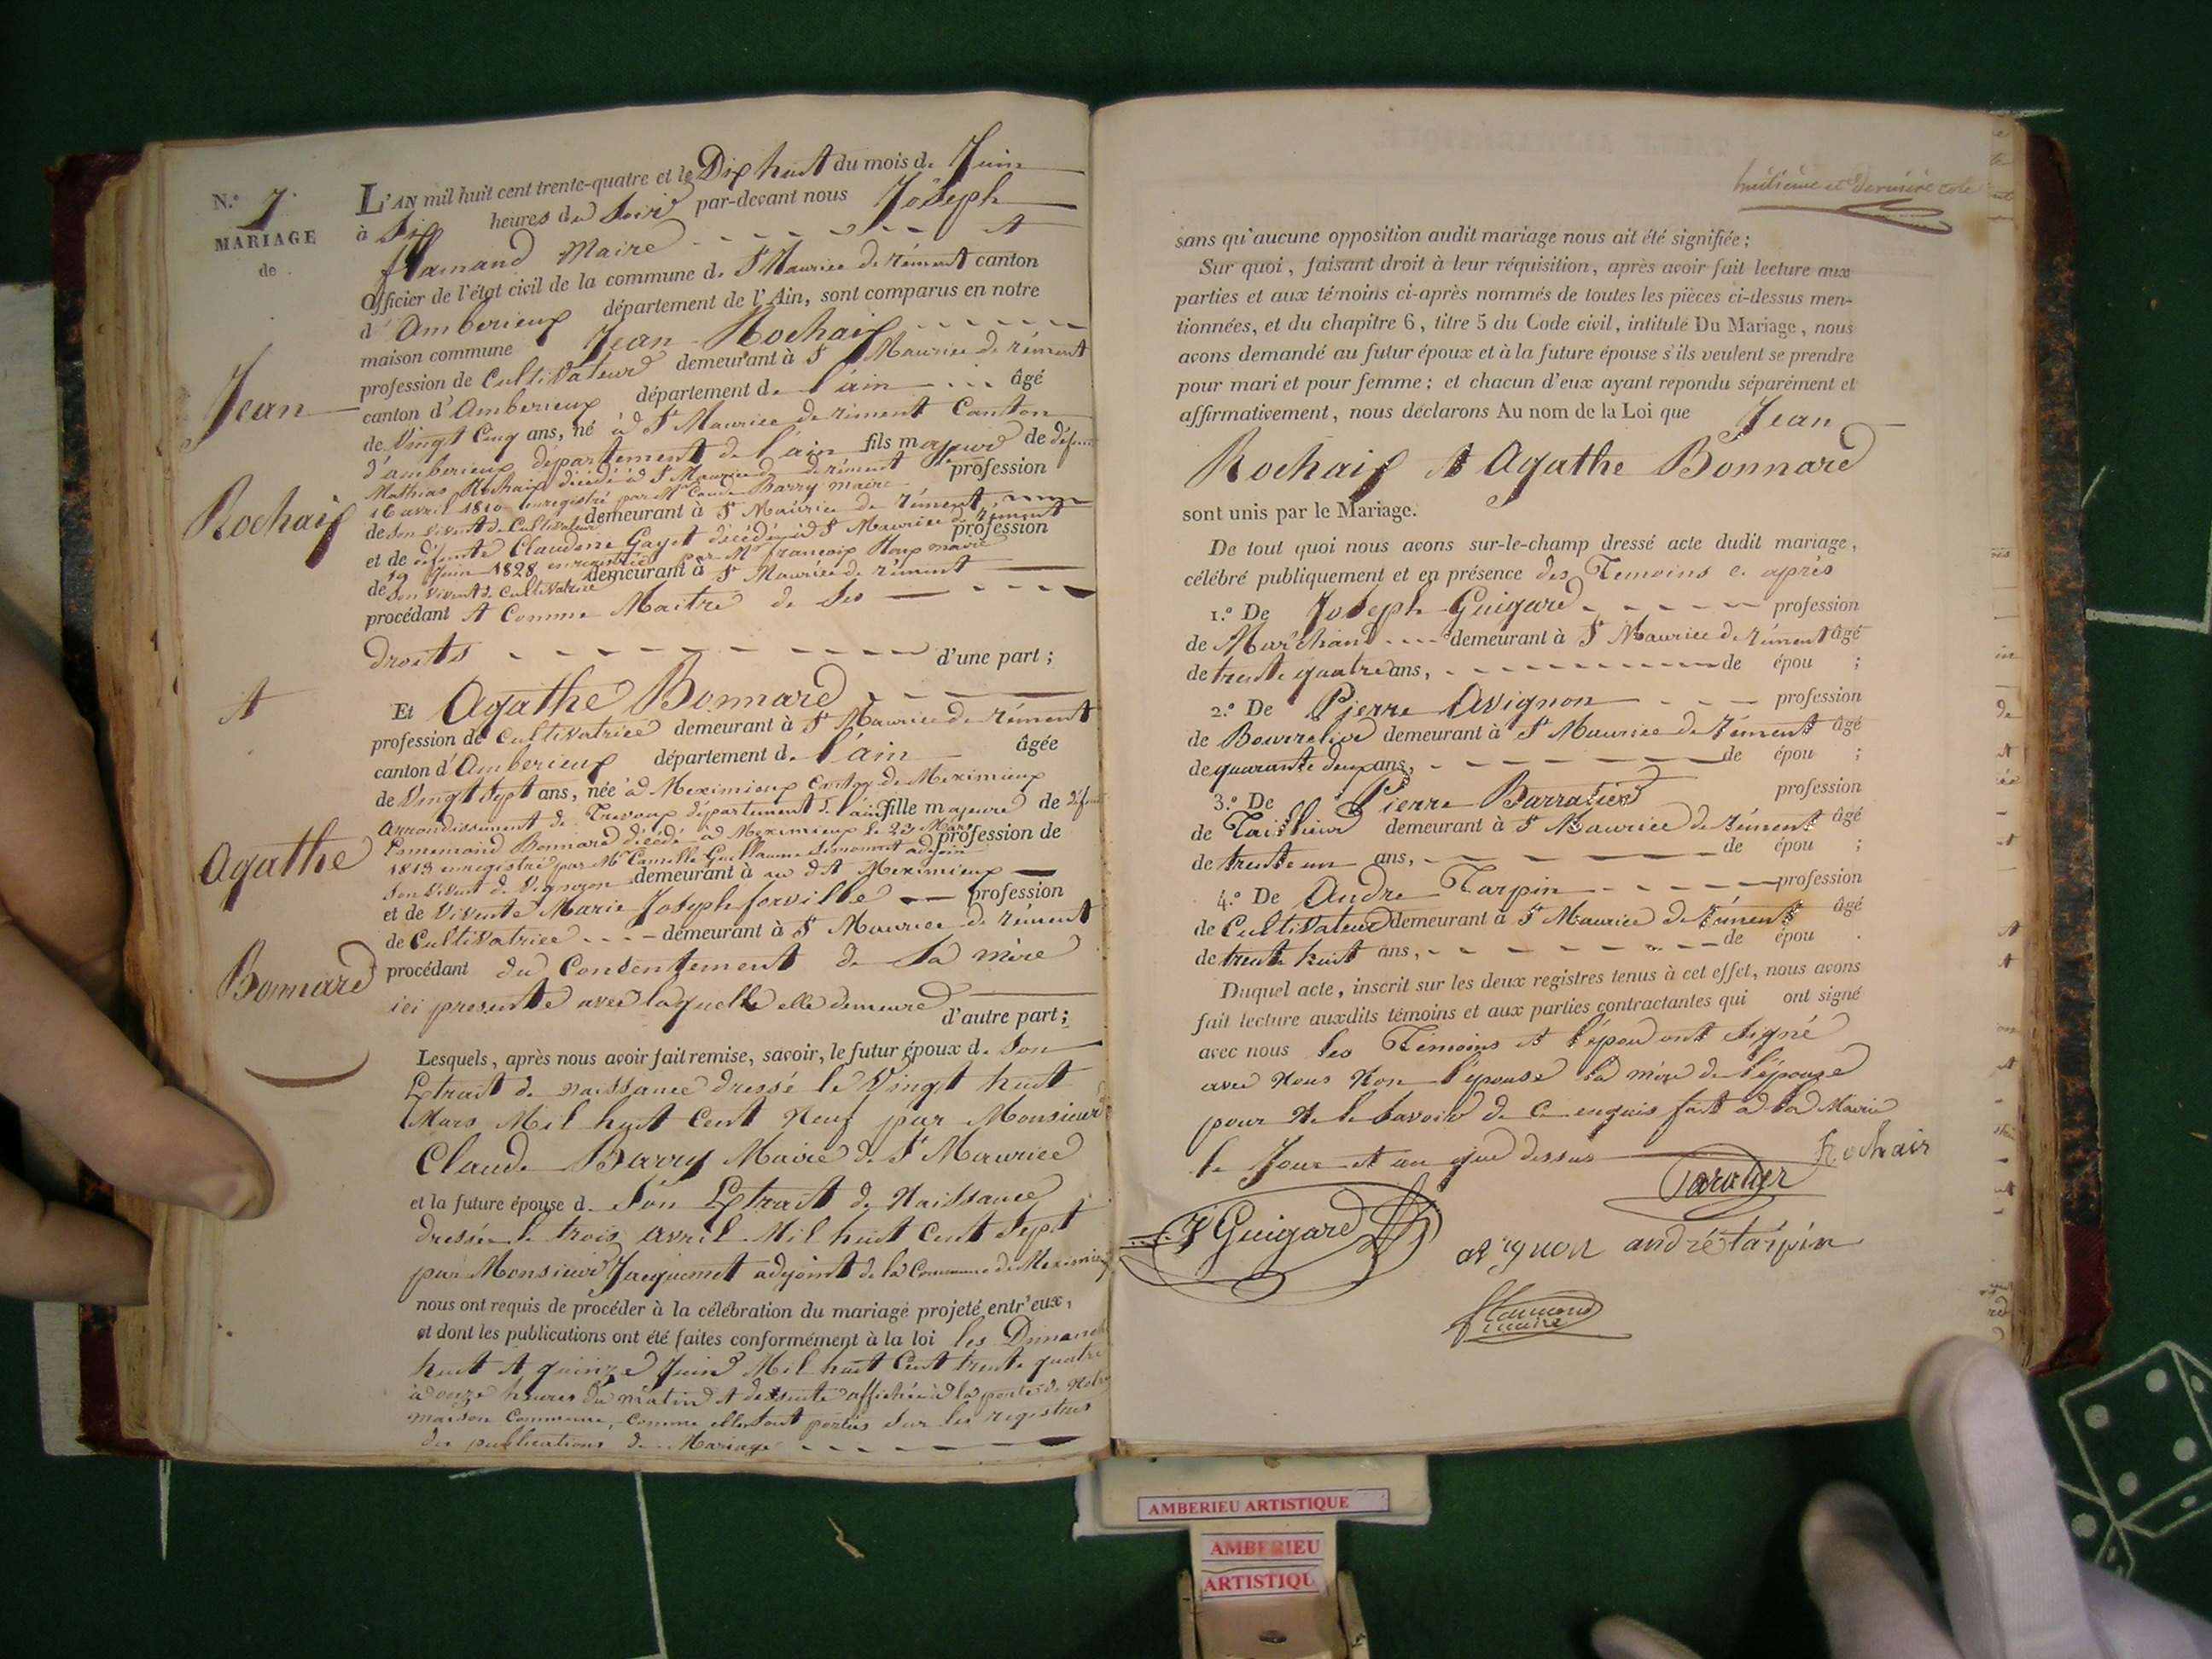 N.º 7.
MARIAGE
de
Jean
Rochaix
et
Agathe
Bonnard
L'AN mil huit cent trente-quatre et le Dix huit du mois de Juin
à Six heures du Soir par-devant nous Joseph
flamand Maire et
Officier de l'état civil de la commune de St Maurice de rément canton
d'Amberieux département de l'Ain, sont comparus en notre
maison commune Jean Rochaix
profession de Cultivateur demeurant à St Maurice de rément
canton d'Amberieux département de l'ain âgé
de Vingt Cinq ans, né à St Maurice de riment Canton
d'amberieux département de l'ain fils majeur de déf
Mathias Rochaix décédé à St Maurice de rément profession
16 avril 1810 enregistré par Mr Claude Barry maire
de son vivant de Cultivateur demeurant à St Maurice de rément
et de défunte Claudine Gayet décédée à St Maurice de rément profession
19 Juin 1828 enregistrée par Mr françois maire
de Son vivant de Cultivatrice demeurant à St Maurice de rément
procédant et Comme Maitre de Ses
droits d'une part ;
Et Agathe Bonnard
profession de Cultivatrice demeurant à St Maurice de rément
canton d'Amberieux département de l'ain âgée
de Vingt Sept ans, née à Meximieux Canton de Meximieux
arrondissement de Trevoux département de l'ain fille majeure de déf
Bonnard décédé à Meximieux le 23 Mars profession de
1813 enregistré par Mr Camille Guillaume adjoint
Son vivant de Vigneron demeurant à au dit Meximieux
et de Vivante Marie Joseph forville profession
de Cultivatrice demeurant à St Maurice de rément
procédant du Consentement de Sa mère
ici presente avec laquelle elle demeure d'autre part ;
Lesquels, après nous avoir fait remise, savoir, le futur époux de Son
Extrait de naissance dressé le Vingt huit
Mars Mil huit Cent Neuf par Monsieur
Claude Barry Maire de St Maurice
et la future épouse d. Son Extrait de Naissance
dressée le trois avril Mil huit Cent Sept
par Monsieur Jacquemet adjoint de la Commune de Meximieux
nous ont requis de procéder à la célébration du mariage projeté entr'eux,
et dont les publications ont été faites conformément à la loi les Dimanche
huit et quinze Juin Mil huit Cent trente quatre
à onze heures du matin et affichée à la porte de Notre
maison Commune, comme elles sont portées Sur les registres
des publications de Mariage
huitieme et derniere cote
sans qu'aucune opposition audit mariage nous ait été signifiée ;
Sur quoi, faisant droit à leur réquisition, après avoir fait lecture aux
parties et aux témoins ci-après nommés de toutes les pièces ci-dessus men-
tionnées, et du chapitre 6, titre 5 du Code civil, intitulé Du Mariage, nous
avons demandé au futur époux et à la future épouse s'ils veulent se prendre
pour mari et pour femme ; et chacun d'eux ayant repondu séparément et
affirmativement, nous déclarons Au nom de la Loi que Jean
Rochaix et Agathe Bonnard
sont unis par le Mariage.
De tout quoi nous avons sur-le-champ dressé acte dudit mariage,
célébré publiquement et en présence des Temoins c. après
1.º De Joseph Guigard profession
de Marchand demeurant à St Maurice de rément âgé
de trente quatre ans, de épou ;
2.º De Pierre Avignon profession
de Bourrelier demeurant à St Maurice de rément âgé
de quarante deux ans, de épou ;
3.º De Pierre Barratier profession
de Taillieur demeurant à St Maurice de rément âgé
de trente un ans, de épou ;
4.º De Andre Tarpin profession
de Cultivateur demeurant à St Maurice de rément âgé
de trente huit ans, de épou .
Duquel acte, inscrit sur les deux registres tenus à cet effet, nous avons
fait lecture auxdits témoins et aux parties contractantes qui ont signé
avec nous les Temoins et l'époux ont Signé
avec Nous Non l'épouse la mère de l'épouse
pour Ne le Savoir de ce enquis fait à la Mairie
le Jour et an que dessus
Rochair
Baratier
J Guigard
avignon
andré tarpin
flamand
maire
AMBERIEU ARTISTIQUE
AMBERIEU
ARTISTIQU